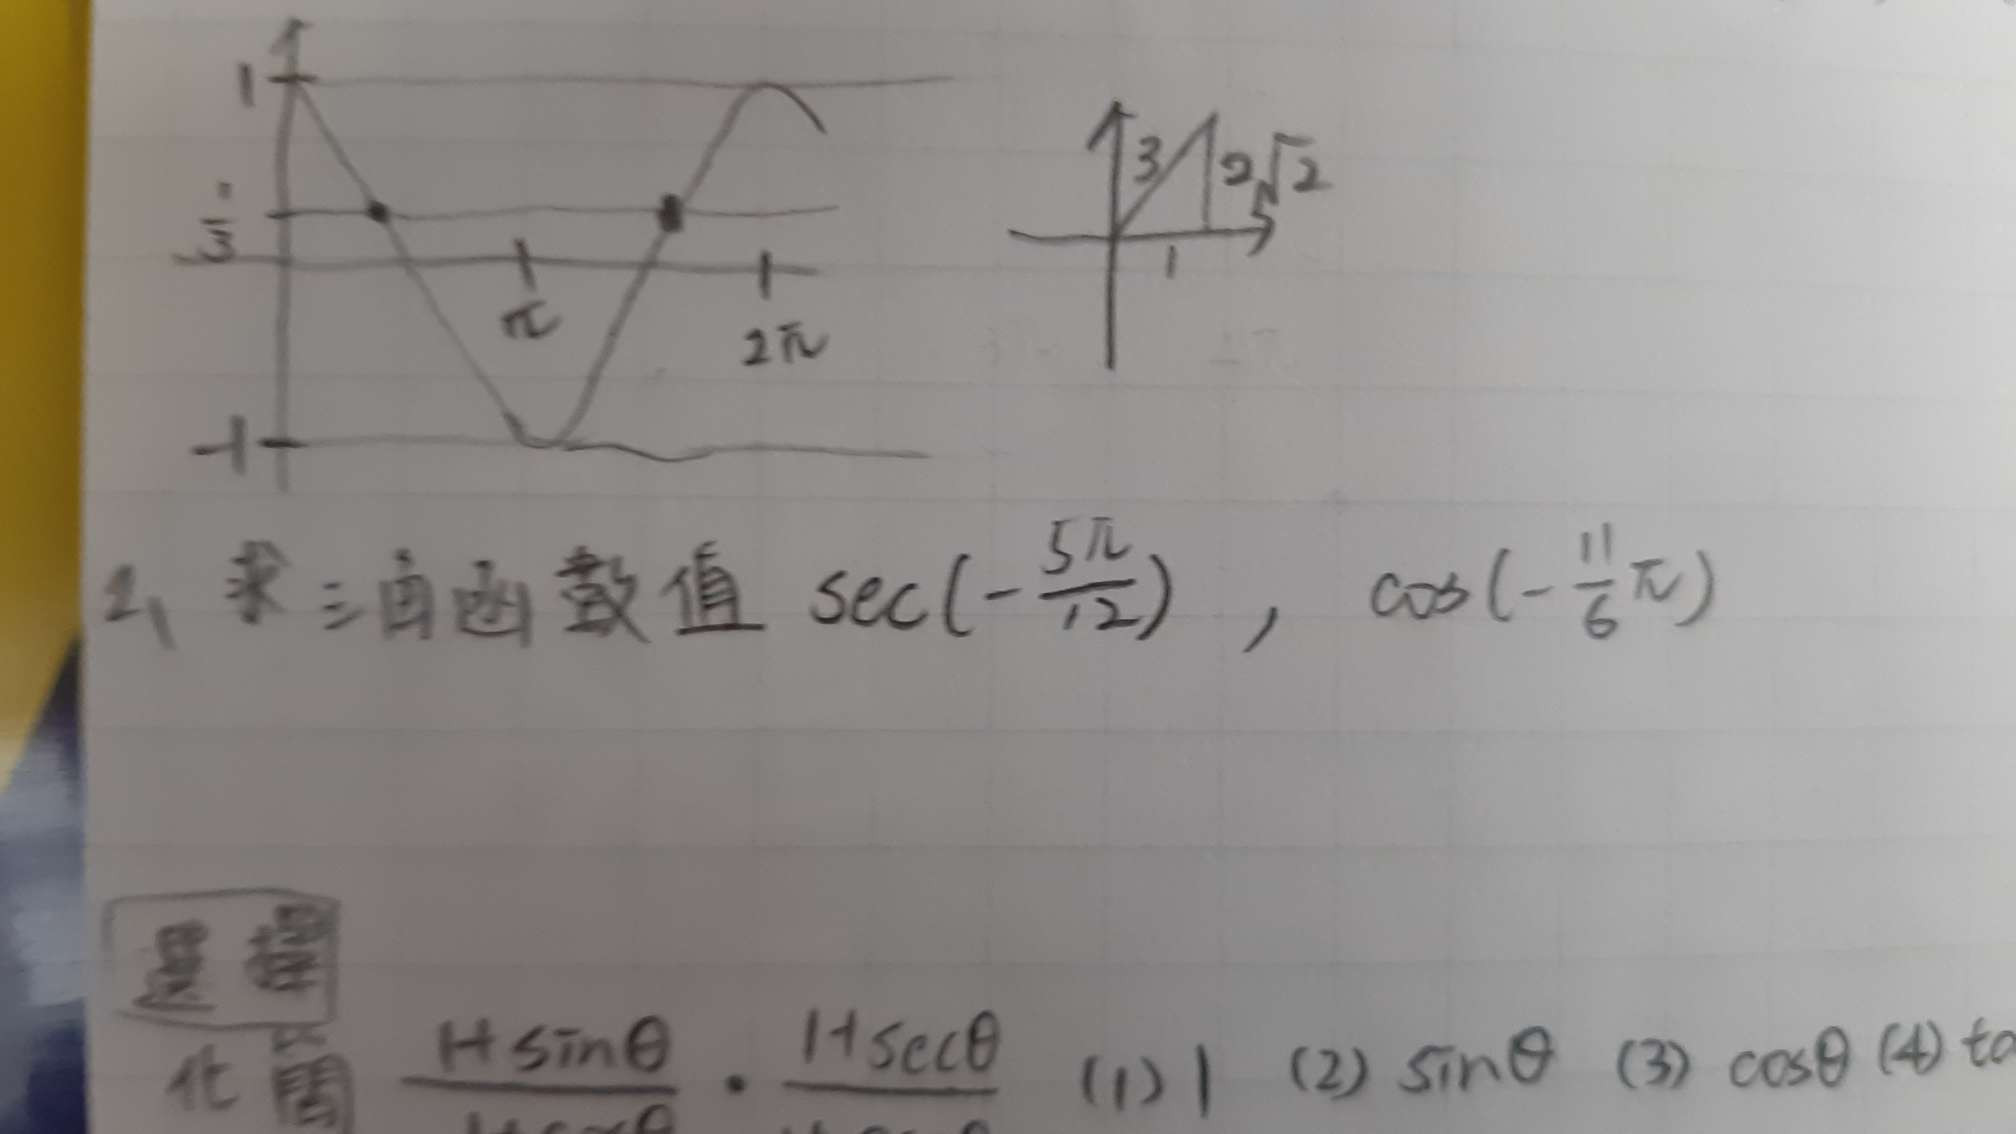 1
1/3
π
2π
-1
3
2√2
1
2、求三角函數值 sec(-5π/12) , cos(-11/6 π)
化簡 1+sinθ · 1+secθ (1) 1 (2) sinθ (3) cosθ (4)